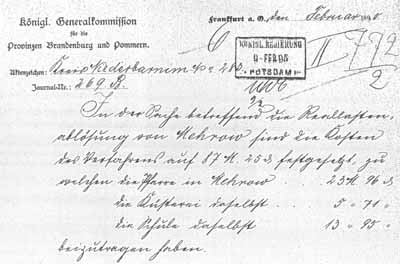 Königl. Generalkommission
für die
Provinzen Brandenburg und Pommern.
Frankfurt a. O., den Februar
Aktenzeichen: Kreis Niederbarnim
Journal-Nr.: 269 B.
KÖNIGL. REGIERUNG
9-FEB.05
POTSDAM
II 772
2
In der Sache betreffend die Reallasten-
ablösung von Mehrow sind die Kosten
des Verfahrens auf 87 M. 25 d festgesetzt, zu
welchen die Pfarre in Mehrow . . 23 M 96 d
die Küsterei daselbst . . . 5 " 71 "
die Schule daselbst 13 " 95 "
beizutragen haben.